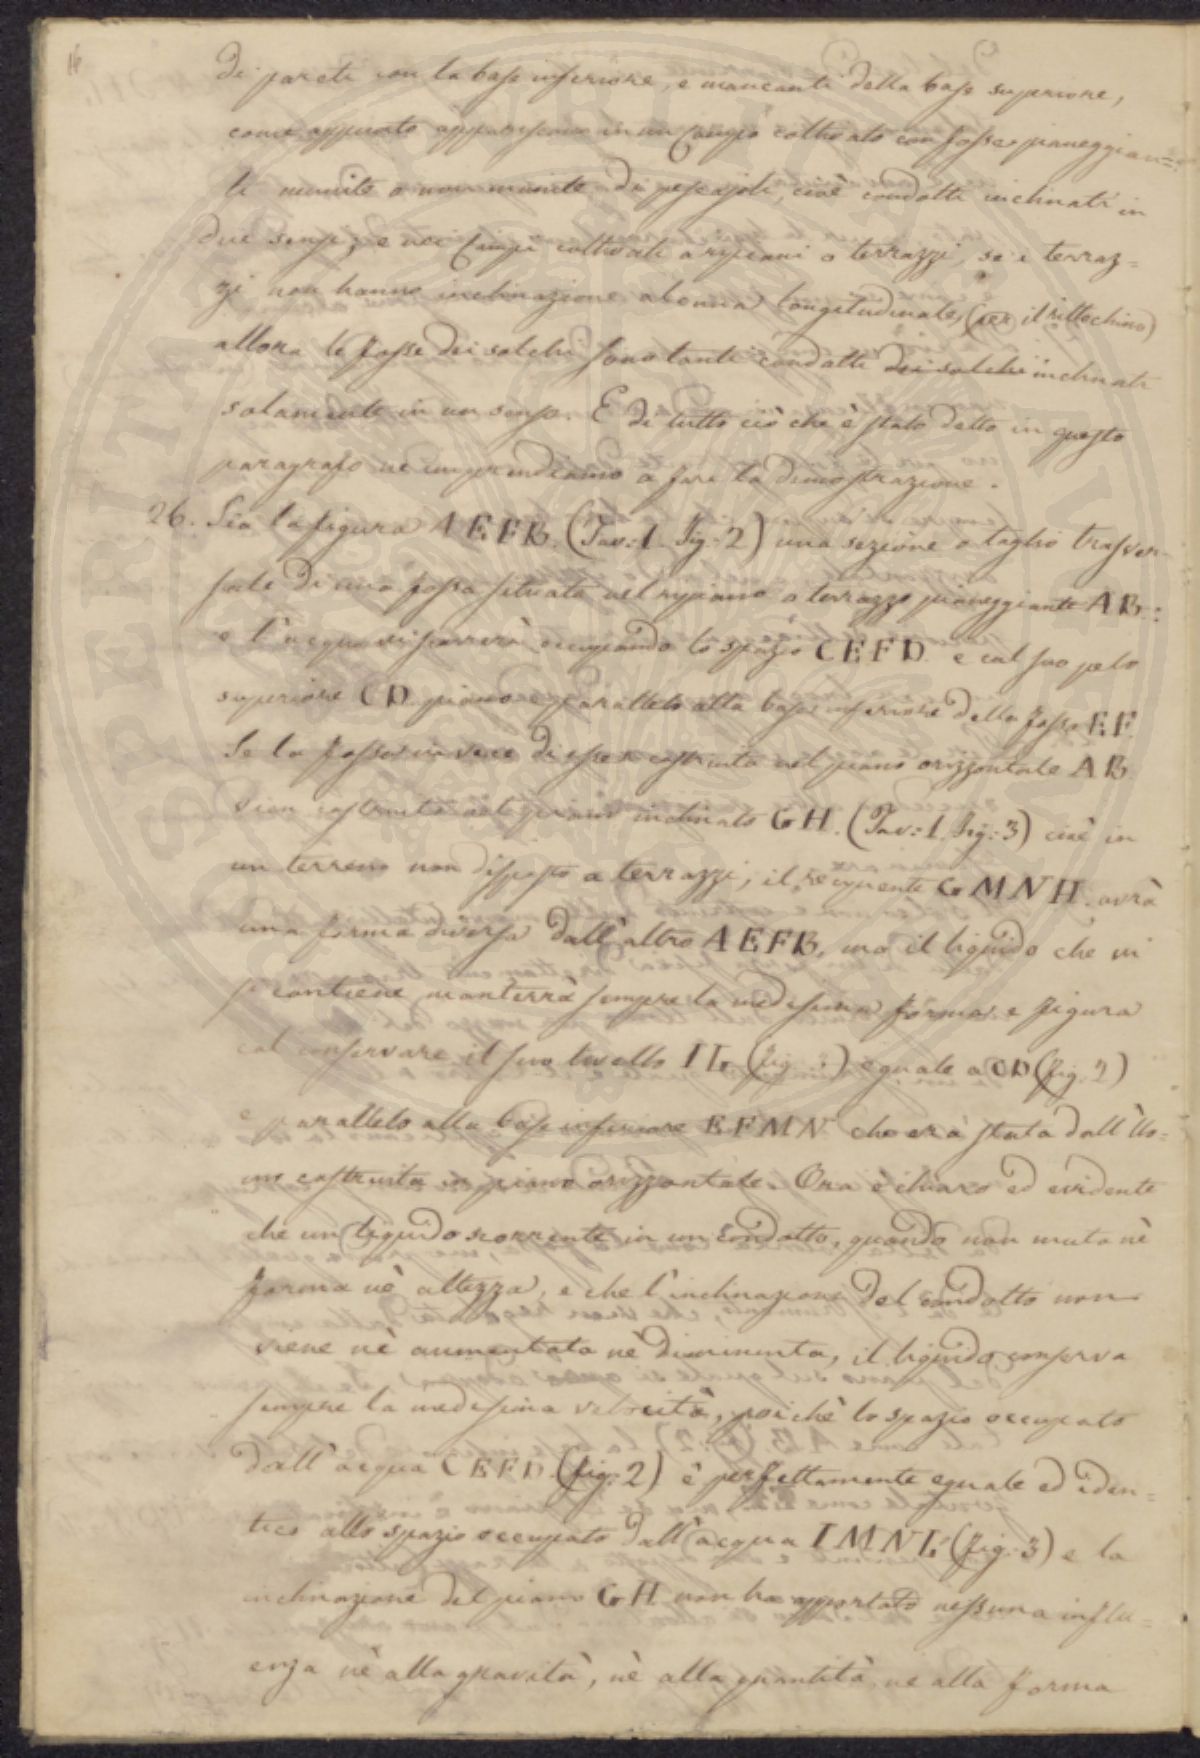 16
di pareti con la base inferiore, e mancanti della base superiore,
come appunto appariscono in un Campo coltivato con fosse pianeggian=
ti munite o non munite di pescajoli, cioè condotti inclinati in
due sensi; e nei Campi coltivati a ripiani o terrazzi, se i terraz=
zi non hanno inclinazione alcuna longitudinale, (per il rittochino)
allora le fosse dei solchi sono tanti condotti dei solchi inclinati
solamente in un senso. E di tutto ciò che è stato detto in questo
paragrafo ne imprendiamo a fare la dimostrazione.
26. Sia la figura AEFB. (Tav: I. Fig: 2) una sezione o taglio trasver=
sale di una fossa situata nel ripiano o terrazzo pianeggiante AB:
e l'acqua vi scorrerà occupando lo spazio CEFD. e col suo pelo
superiore CD. piano e parallelo alla base inferiore della fossa EF.
Se la fossa in vece di essere costruita nel piano orizzontale AB.
vien costruita nel piano inclinato GH. (Tav: I. Fig: 3) cioè in
un terreno non disposto a terrazzi, il recipiente GMNH. avrà
una forma diversa dall'altro AEFB, ma il liquido che vi
si contiene manterrà sempre la medesima forma e figura
col conservare il suo livello IL (fig. 3) eguale a CD (fig. 2)
e parallelo alla base inferiore EFMN che era stata dall'Uo=
mo costruita in piano orizzontale. Ora è chiaro ed evidente
che un liquido scorrente in un condotto, quando non muta nè
forma nè altezza, e che l'inclinazione del condotto non
viene nè aumentata nè diminuita, il liquido conserva
sempre la medesima velocità, poichè lo spazio occupato
dall'acqua CEFD (fig: 2) è perfettamente eguale ed iden=
tico allo spazio occupato dall'acqua IMNL (fig: 3) e la
inclinazione del piano GH non ha apportato nessuna influ=
enza nè alla gravità, nè alla quantità, nè alla forma